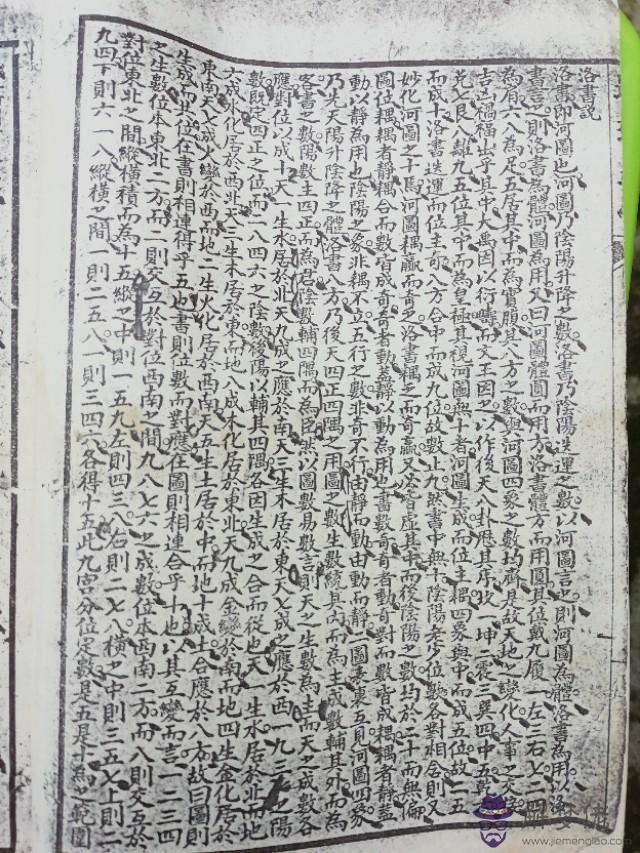 洛書說
洛書即河圖也河圖乃陰陽升降之數洛書乃陰陽迭運之數以河圖言之則河圖為體洛書為用以洛
書言之則洛書為體河圖為用又曰河圖體圓而用方洛書體方而用圓其位戴九履一左三右七二四
為肩六八為足五居其中而為實腹其八方之數與河圖四象之數均齊具故天地之變化人事之
吉凶禍福出乎其中大禹因以衍疇而文王因之以作後天八卦曆其序坎一坤二震三巽四中五乾六
兌七艮八離九五位其中而為皇極其視河圖無十者河圖生成而位主耦四象與中而成五位故二五
而成十洛書迭運而位主奇八方合中而成九位故數止九然書中無十陰陽老少位數各對相含則又
妙化河圖之十焉河圖耦贏而奇乏洛書耦乏而奇贏又必皆虛其中而後陰陽之數均於二十而無偏
圖位耦耦者靜耦合而數皆成奇奇者動蓋靜以動為用也書數奇奇者動奇對而數皆成耦耦者靜蓋
動以靜為用也陰陽之象非耦不立五行之數非奇不行由靜而動由動而靜二圖表裏互見河圖四象
乃先天陽升陰降之體洛書八方乃後天四正四隅之用圖之數生數統其內而為主成數輔其外而為
客書之數陽數主四正而為君陰數輔四隅而為臣然以圖數易數言則天之生數為主而天之成數各
應對位以成十天一生水居於北天九成之應於南天三生木居於東天七成之應於西一九三七之陽
數既定四正之位而二八四六之陰數後陽以輔其四隅各因生成之合而從也天一生水居於北而地
六成水化居於西北天三生木居於東而地八成木化居於東北天九成金變於南而地四生金化居於
東南天七成火變於西而地二生火化居於西南天五生土居於中而地十成土合應於八方故曰圖則
生成而共位在書則相連得乎五也書則位數而對應在圖則相連合乎十也以其互變而言一二三四
之生數位本東北二方而二則交互於對位西南之間九八七六之成數位本西南二方而八則交互於
對位東北之間縱橫積而為十五縱之中則一五九左則四三八右則二七六橫之中則三五七上則二
九四下則六一八縱橫之間一則二五八一則三四六各得十五此九宮分位定數是五是十為之範圍
www.jiemengiao.com